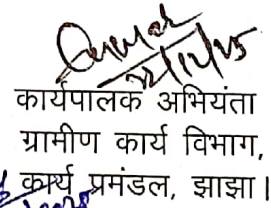 22/12/25
कार्यपालक अभियंता
ग्रामीण कार्य विभाग,
कार्य प्रमंडल, झाझा।